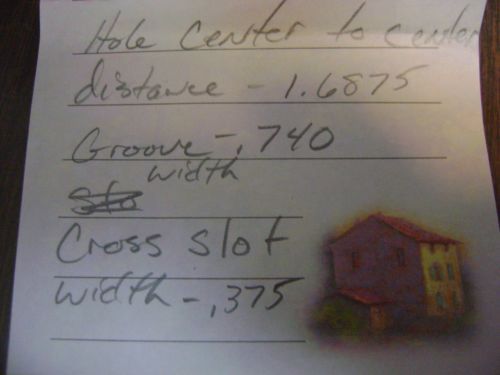 Hole Center to center
distance - 1.6875
Groove - .740
width
Cross slot
width - .375